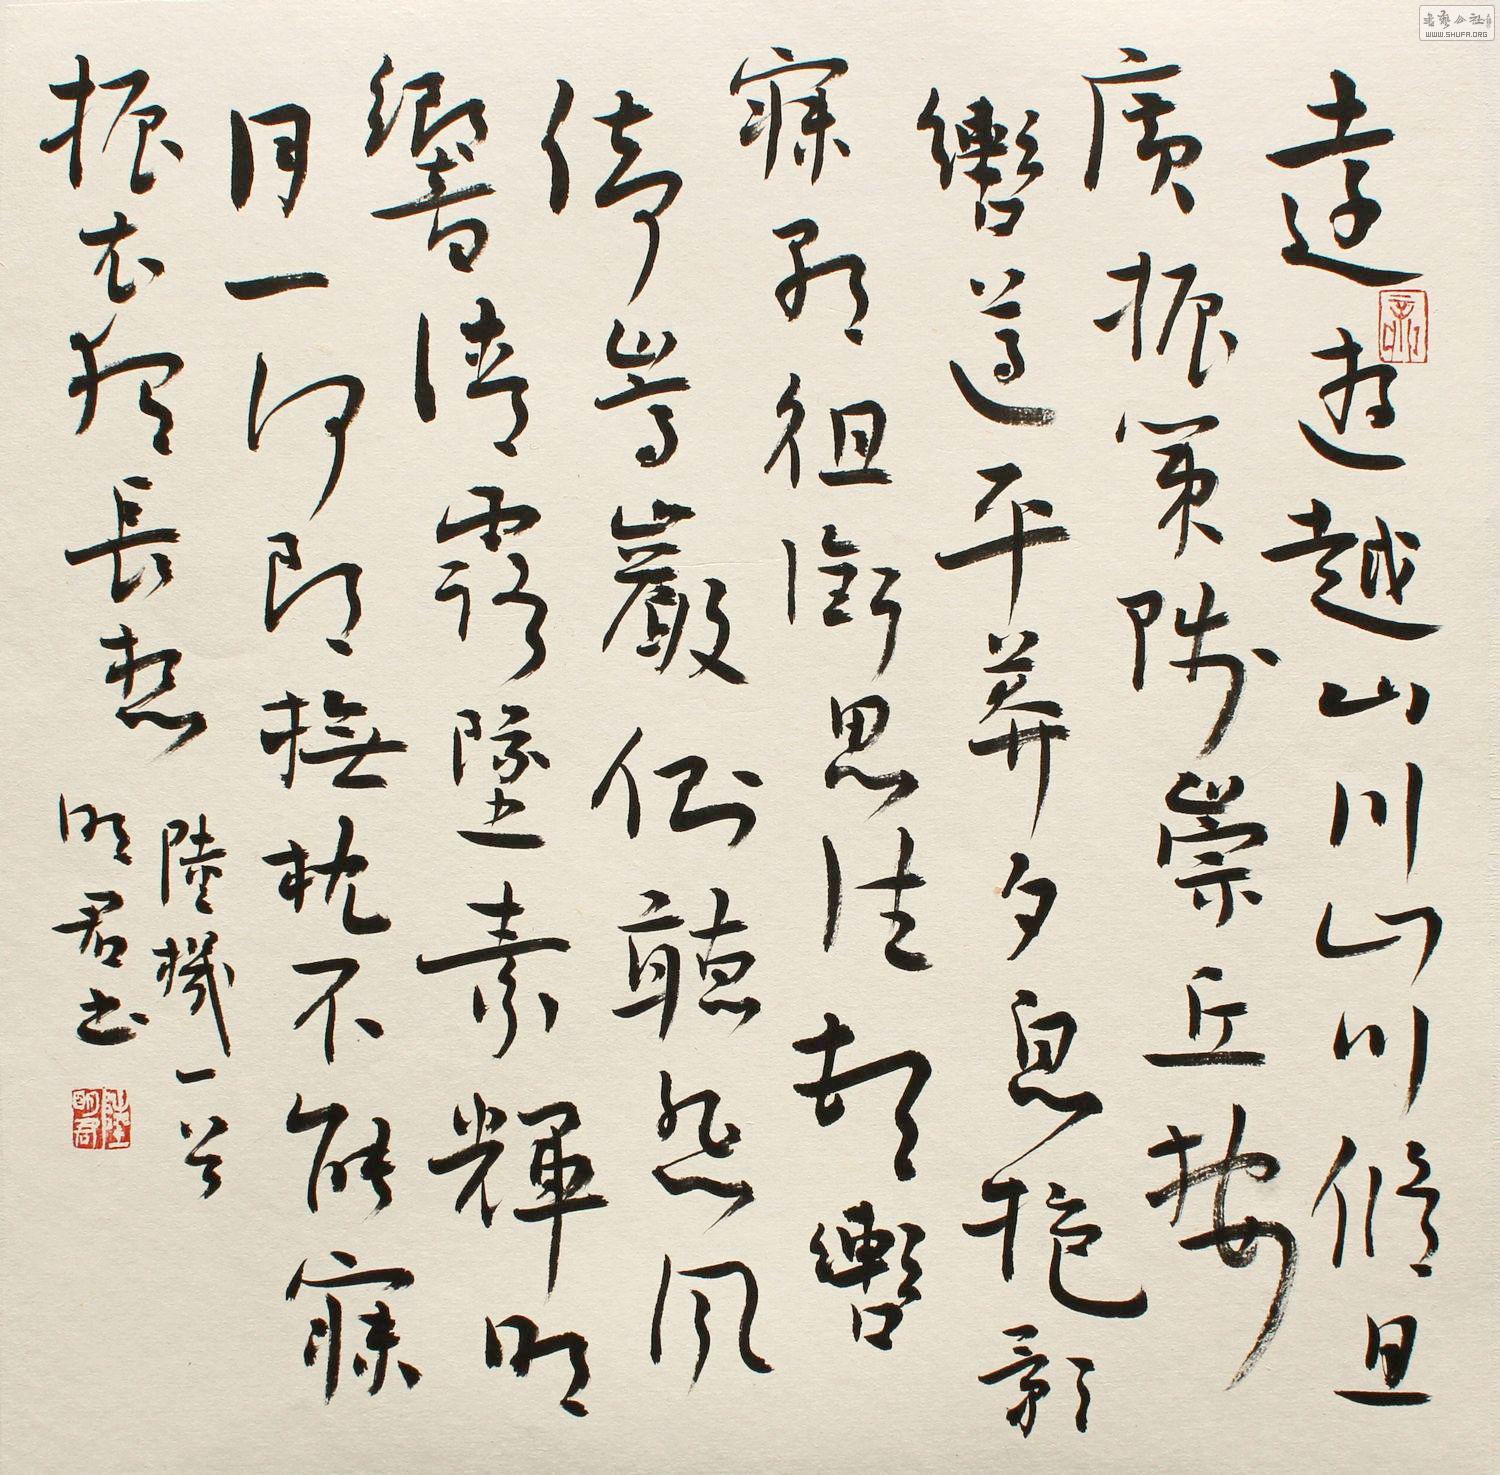 遠遊越山川山川脩且
廣振策陟崇丘按
轡遵平莽夕息抱影
寐朝徂銜思往頓轡
倚嵩巖側聽悲風
響清露墜素輝明
月一何朗撫枕不能寐
振衣獨長想
陸機一首
明君書
陸明君
書藝公社
WWW.SHUFA.ORG